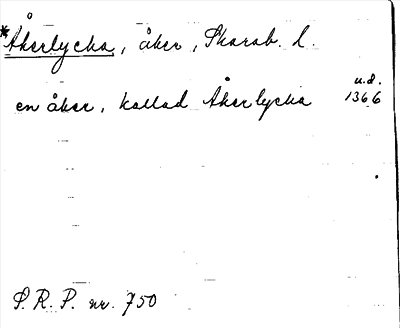 *Åkerlycka, åker, Skarab. l.
u.d.
en åker, kallad Åkerlycka 1366
S. R. P. nr. 750